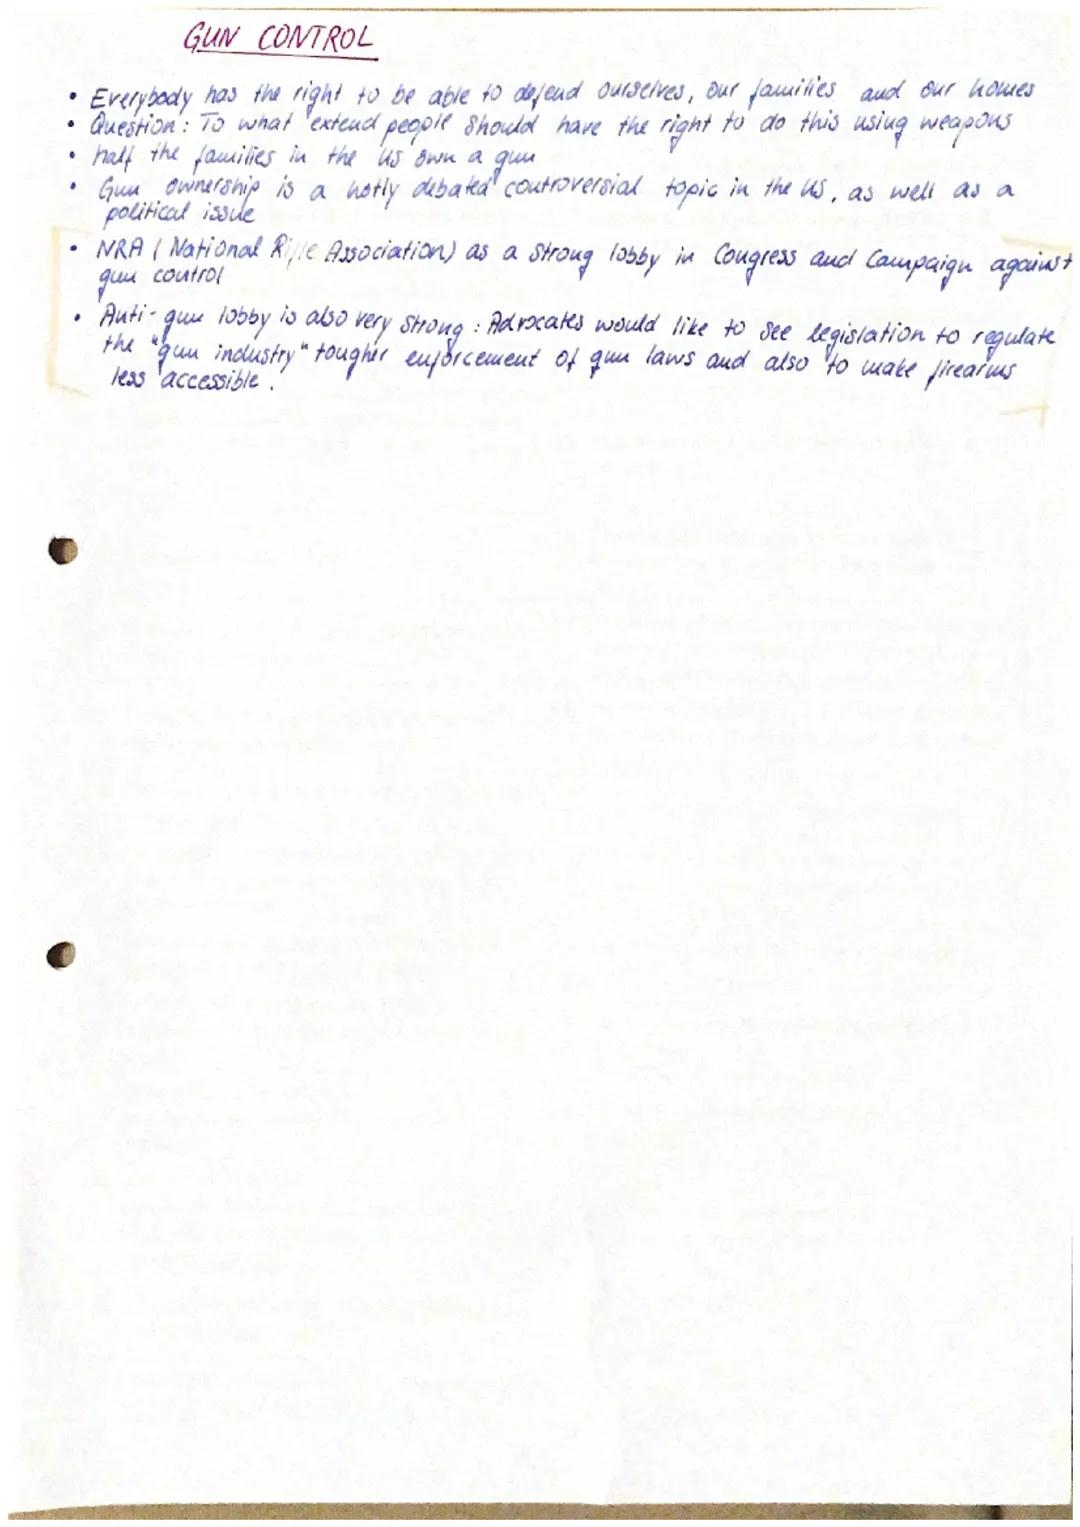 GUN CONTROL
• Everybody has the right to be able to defend ourselves, our families and our homes
• Question: To what extend people should have the right to do this using weapons
• half the families in the US own a gun
• Gun ownership is a hotly debated controversial topic in the US, as well as a
political issue
• NRA (National Rifle Association) as a strong lobby in Congress and Campaign against
gun control
• Anti-gun lobby is also very strong: Advocates would like to see legislation to regulate
the "gun industry" tougher enforcement of gun laws and also to make firearms
less accessible.